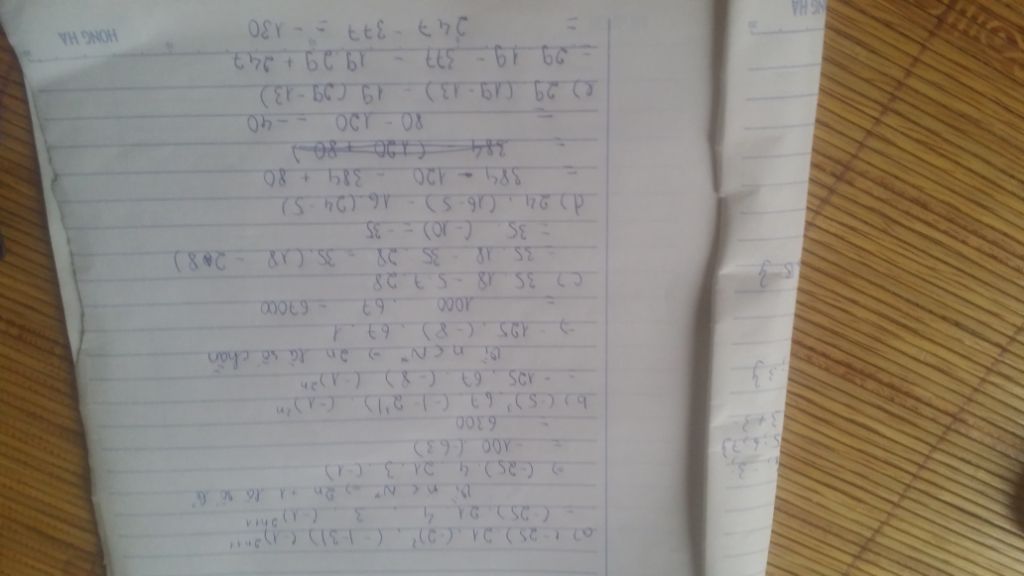 a) (-25) 21 (-2)² . (-|-3|) (-1)²ⁿ⁺¹
= (-25) 21 4 . 3 . (-1)²ⁿ⁺¹
Vì n ∈ N* => 2n + 1 là số lẻ
=> (-25) 4 21 . 3 . (-1)
= -100 (63)
= 6300
b) (-5)³ . 67 . (-|-2³|) . (-1)²ⁿ
= -125 . 67 . (-8) (-1)²ⁿ
Vì n ∈ N* => 2n là số chẵn
=> -125 . (-8) . 67 . 1
= 1000 . 67 = 67000
c) 35 18 - 5 7 28
= 35 18 - 35 28 = 35 (18 - 28)
= 35 . (-10) = -35
d) 24 . (16-5) - 16 . (24-5)
= 384 - 120 - 384 + 80
= 384 (120 + 80)
= 80 - 120 = -40
e) 29 (19-13) - 19 (29-13)
= 29 19 - 377 - 19 29 + 247
= 247 - 377 = -130
HONG HA